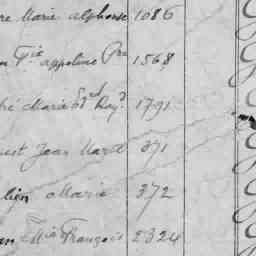 re Marie alphonse 1086
appoline 1568
Marie Ed Raym 1791
Jean Marie 371
lien Marie 372
François 2324